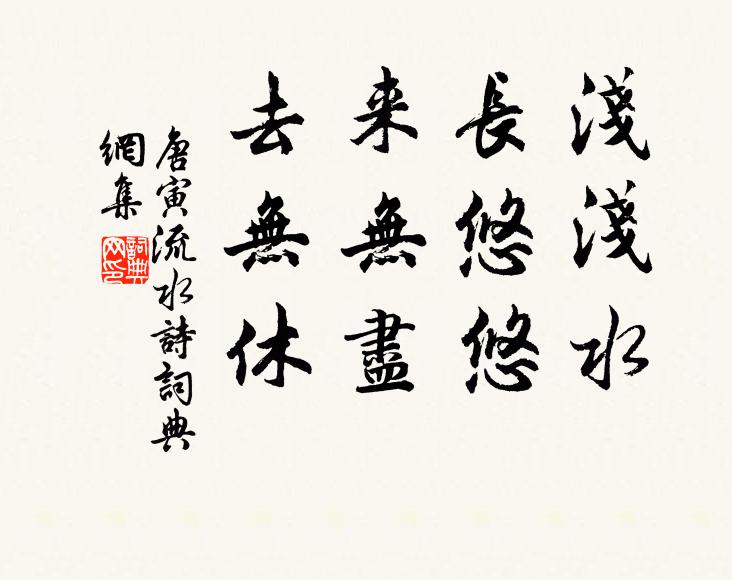 淺淺水
長悠悠
来無盡
去無休
唐寅流水詩詞典
網集
詞典網印